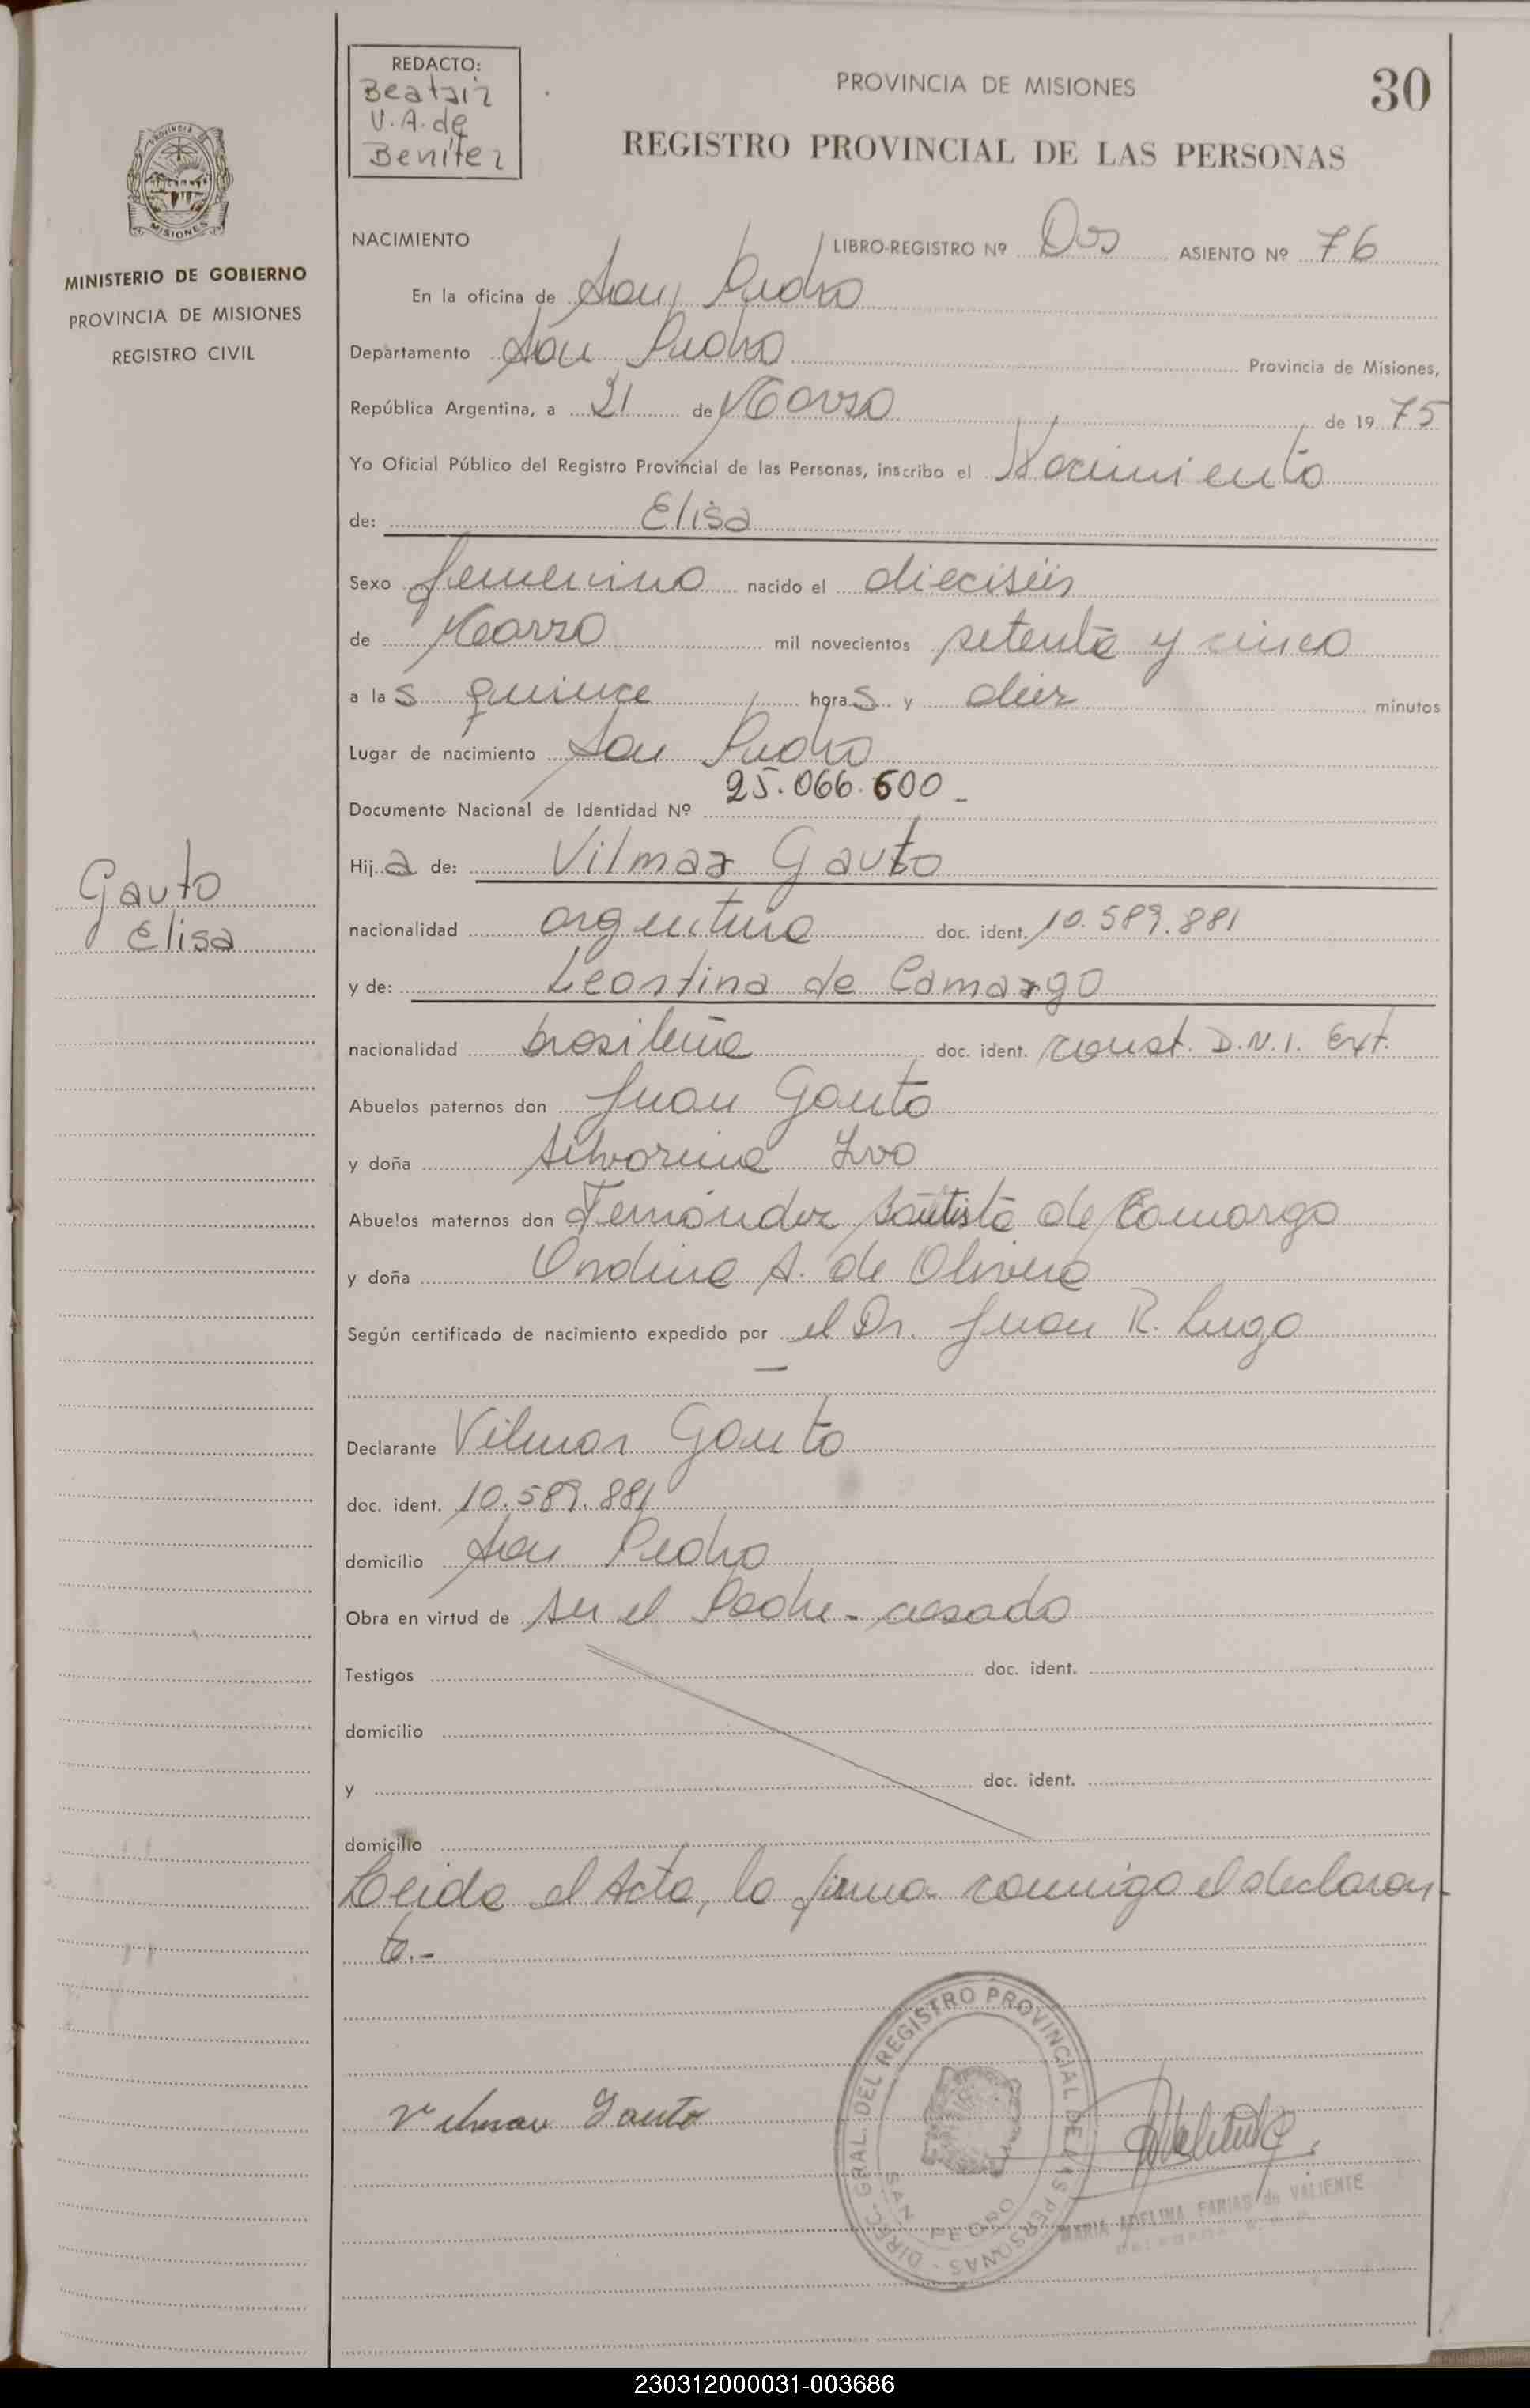 REDACTO:
Beatriz
V. A. de
Benítez
PROVINCIA DE MISIONES
30
REGISTRO PROVINCIAL DE LAS PERSONAS
MISIONES
MINISTERIO DE GOBIERNO
PROVINCIA DE MISIONES
REGISTRO CIVIL
NACIMIENTO LIBRO-REGISTRO Nº Dos ASIENTO Nº 76
En la oficina de San Pedro
Departamento San Pedro Provincia de Misiones,
República Argentina, a 21 de Marzo de 1975
Yo Oficial Público del Registro Provincial de las Personas, inscribo el Nacimiento
de: Elisa
Sexo femenino nacido el dieciséis
de Marzo mil novecientos setenta y cinco
a las quince horas y diez minutos
Lugar de nacimiento San Pedro
Documento Nacional de Identidad Nº 25.066.600-
Hija de: Vilmar Gauto
Gauto
Elisa
nacionalidad argentina doc. ident. 10.589.881
y de: Leontina de Camargo
nacionalidad brasileña doc. ident. const. D.N.I. Ext.
Abuelos paternos don Juan Gauto
y doña Silvorina Ivo
Abuelos maternos don Fernández Bautista de Camargo
y doña Ondina A. de Olivera
Según certificado de nacimiento expedido por el Dr. Juan R. Lugo
—
Declarante Vilmar Gauto
doc. ident. 10.589.881
domicilio San Pedro
Obra en virtud de ser el Padre - casado
Testigos doc. ident.
domicilio
y doc. ident.
domicilio
Leida el Acta, la firma conmigo el declaran-
te.-
Vilmar Gauto
DIREC. GRAL. DEL REGISTRO PROVINCIAL DE LAS PERSONAS
SAN PEDRO
MARIA ADELINA FARIAS de VALIENTE
230312000031-003686